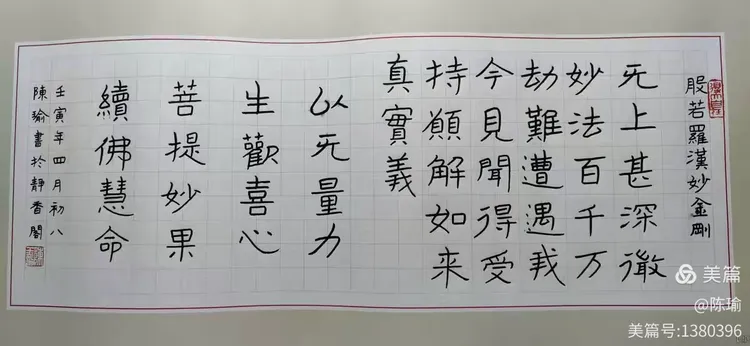 般若羅漢妙金剛
无上甚深微
妙法百千万
劫難遭遇我
今見聞得受
持願解如来
真實義
以无量力
生歡喜心
菩提妙果
續佛慧命
壬寅年四月初八
陳瑜書於靜香閣
美篇
@陈瑜
美篇号:1380396